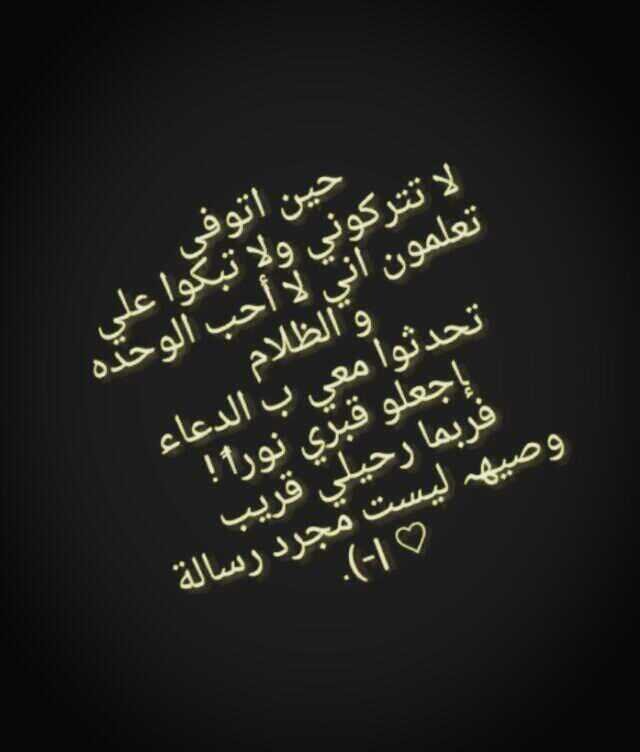 حين اتوفى
لا تتركوني ولا تبكوا علي
تعلمون اني لا أحب الوحده
و الظلام
تحدثوا معي ب الدعاء
إجعلو قبري نوراً !
فربما رحيلي قريب
وصيهہ ليست مجرد رسالة
♡ ا-).